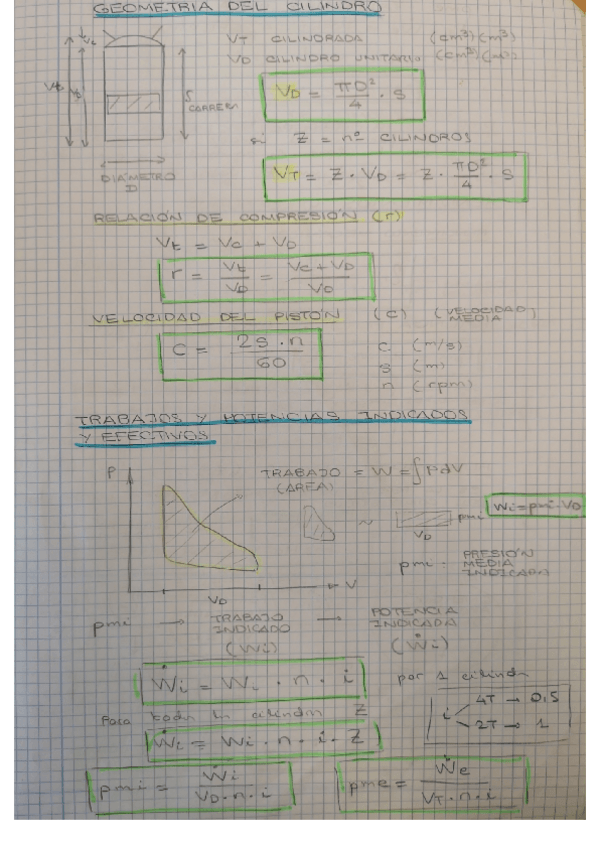 GEOMETRIA DEL CILINDRO
Vc
Vt
S
CARRERA
DIÁMETRO
D
VT CILINDRADA (cm³) (m³)
VD CILINDRO UNITARIO (cm³) (m³)
VD = πD²/4 · S
si Z = nº CILINDROS
VT = Z · VD = Z · πD²/4 · S
RELACIÓN DE COMPRESIÓN (r)
Vt = Vc + VD
r = Vt/VD = Vc + VD/VD
VELOCIDAD DEL PISTÓN (c) (VELOCIDAD MEDIA)
c = 2S · n/60
c (m/s)
s (m)
n (rpm)
TRABAJOS Y POTENCIAS INDICADOS
Y EFECTIVOS
P
TRABAJO = W = ∫PdV
(ÁREA)
~
pmi
VD
Wi = pmi · VD
pmi = PRESIÓN
MEDIA
INDICADA
VD
V
pmi → TRABAJO INDICADO → POTENCIA INDICADA
(Wi) (Ẇi)
Ẇi = Wi · n · i
por 1 cilindro
i
4T → 0,5
2T → 1
Para todos los cilindros Z
Ẇi = Wi · n · i · Z
pmi = Ẇi/VD · n · i
pme = Ẇe/VT · n · i